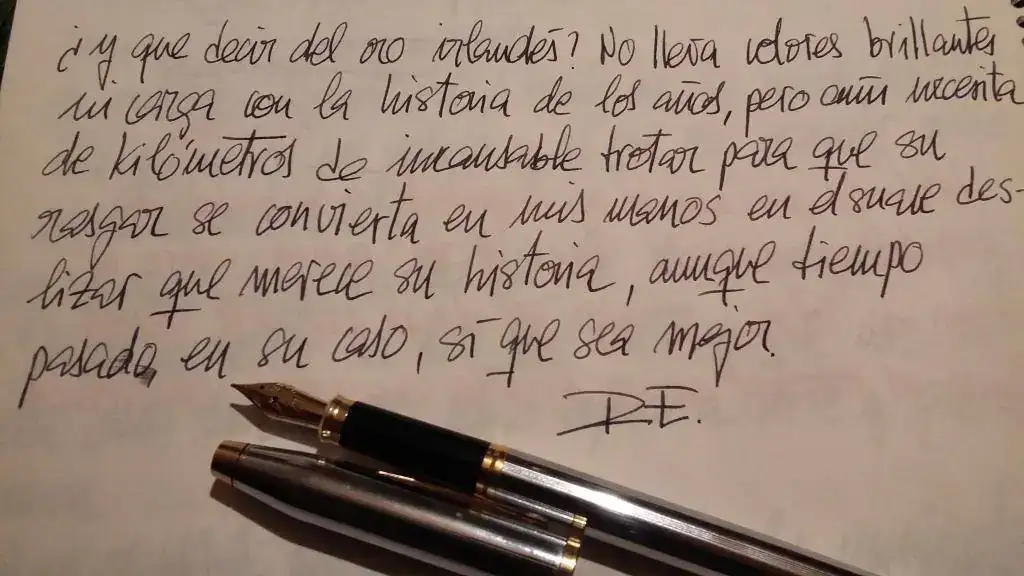 ¿y que decir del oro irlandés? No lleva colores brillantes
ni carga con la historia de los años, pero aún necesita
de kilómetros de incansable trotar para que su
rasgar se convierta en mis manos en el suave des-
lizar que merece su historia, aunque tiempo
pasado, en su caso, sí que sea mejor.
R.E.